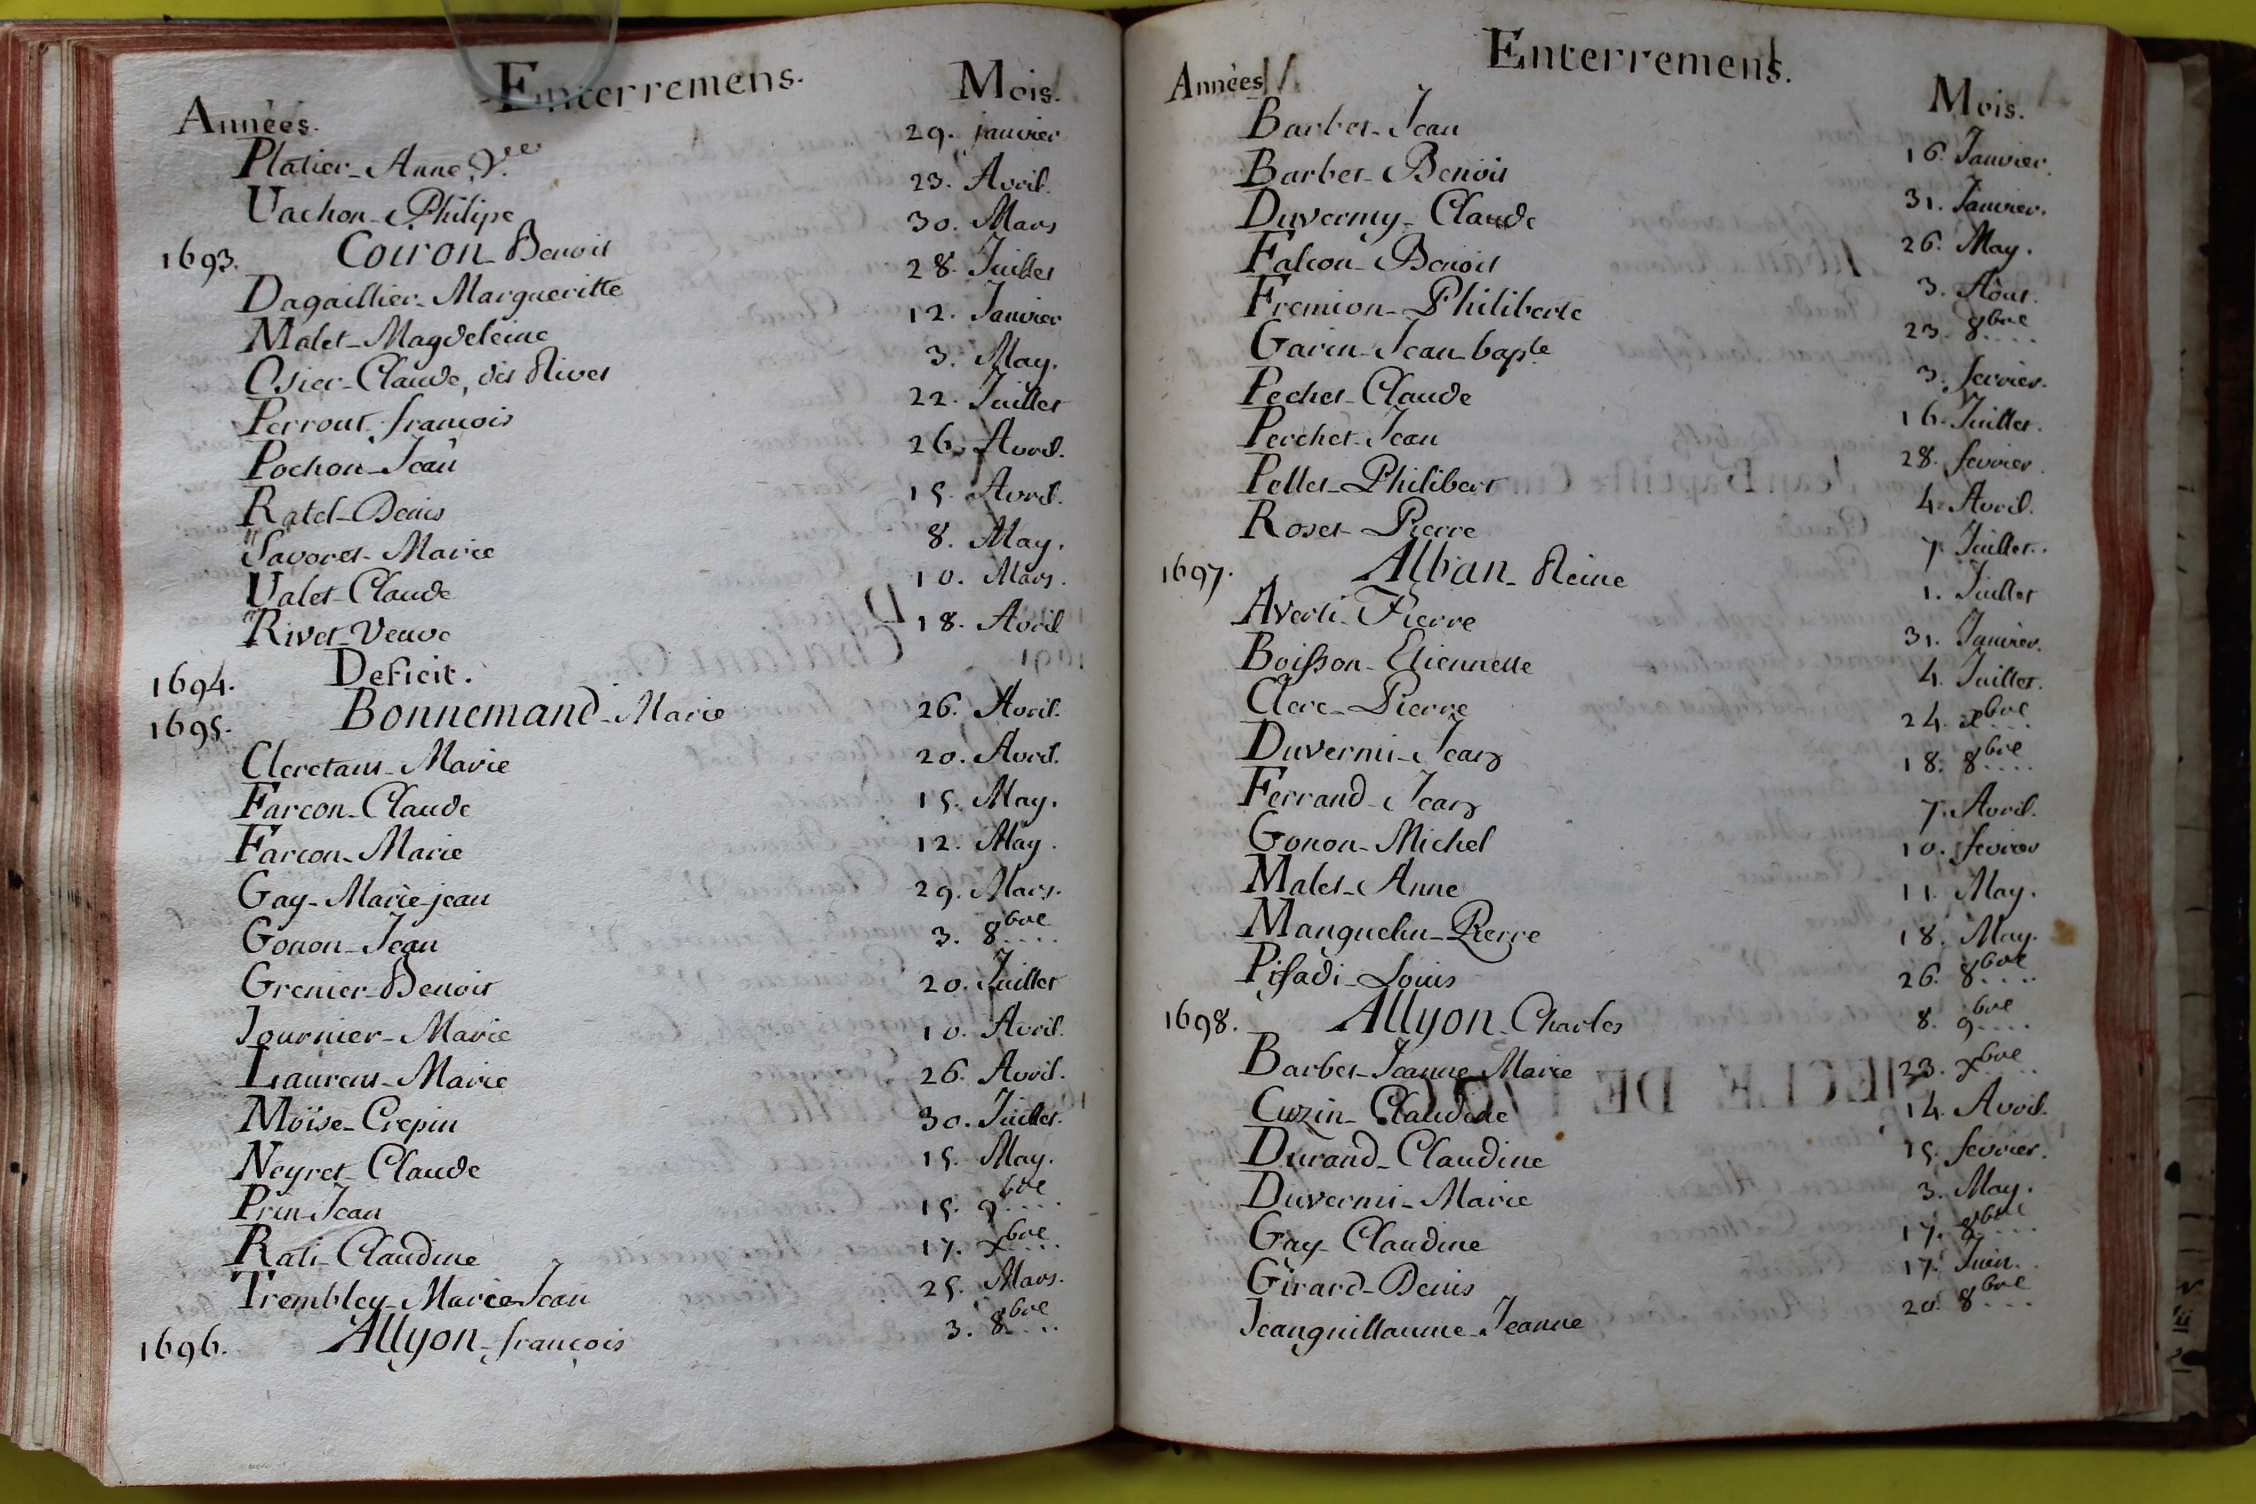 Enterremens.
Années. Mois.
Platier - Anne, V.ve 29. janvier
Vachon - Philipe 23. Avril.
1693. Coiron - Benoit 30. Mars
Dagaillier - Margueritte 28. Juillet
Malet - Magdeleine 12. Janvier
Osier - Claude, dit Rivet 3. May.
Perrout - françois 22. Juillet
Pochon - Jean 26. Avril.
Ratel - Denis 15. Avril.
Savoret - Marie 8. May.
Valet - Claude 10. Mars.
Rivet - Veuve 18. Avril
1694. Deficit.
1695. Bonnemand - Marie 26. Avril.
Cleretant - Marie 20. Avril.
Farcon - Claude 15. May.
Farcon - Marie 12. May.
Gay - Marie-jean 29. Mars.
Gonon - Jean 3. 8bre....
Grenier - Benoit 20. Juillet
Journier - Marie 10. Avril.
Laurent - Marie 26. Avril.
Moïse - Crepin 30. Juillet.
Neyret - Claude 15. May.
Prin - Jean 15. 9bre....
Rati - Claudine 17. xbre....
Trembley - Marie Jean 25. Mars.
1696. Allyon - françois 3. 8bre....
Enterremens.
Années Mois.
Barbet - Jean 16. Janvier.
Barbet - Benoit 31. Janvier.
Duverny - Claude 26. May.
Falcon - Benoit 3. Aôut.
Fremion - Philiberte 23. 8bre....
Gavin - Jean bapte 3. fevrier.
Pechet - Claude 16. Juillet.
Perchet - Jean 28. fevrier.
Pellet - Philibert 4. Avril.
Roset - Pierre 7. Juillet.
1697. Alban - Reine 1. Juillet
Averti - Pierre 31. Janvier.
Boisson - Etiennette 4. Juillet.
Clerc - Pierre 24. xbre....
Duverni - Jean 18. 8bre....
Ferrand - Jean 7. Avril.
Gonon - Michel 10. fevrier
Malet - Anne 11. May.
Manguelin - Pierre 18. May.
Pisadi - Louis 26. 8bre....
1698. Allyon - Charles 8. 9bre....
Barbet - Jeanne Marie 23. xbre....
Cuzin - Claudine 14. Avril.
Durand - Claudine 15. fevrier.
Duverni - Marie 3. May.
Gay - Claudine 17. 8bre....
Girard - Denis 17. Juin.
Jeanguillaume - Jeanne 20. 8bre....